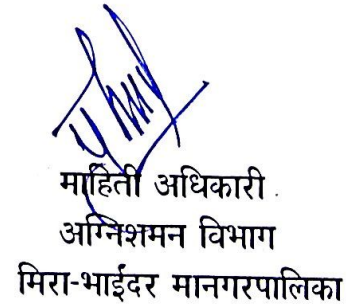 माहिती अधिकारी
अग्निशमन विभाग
मिरा-भाईंदर मानगरपालिका